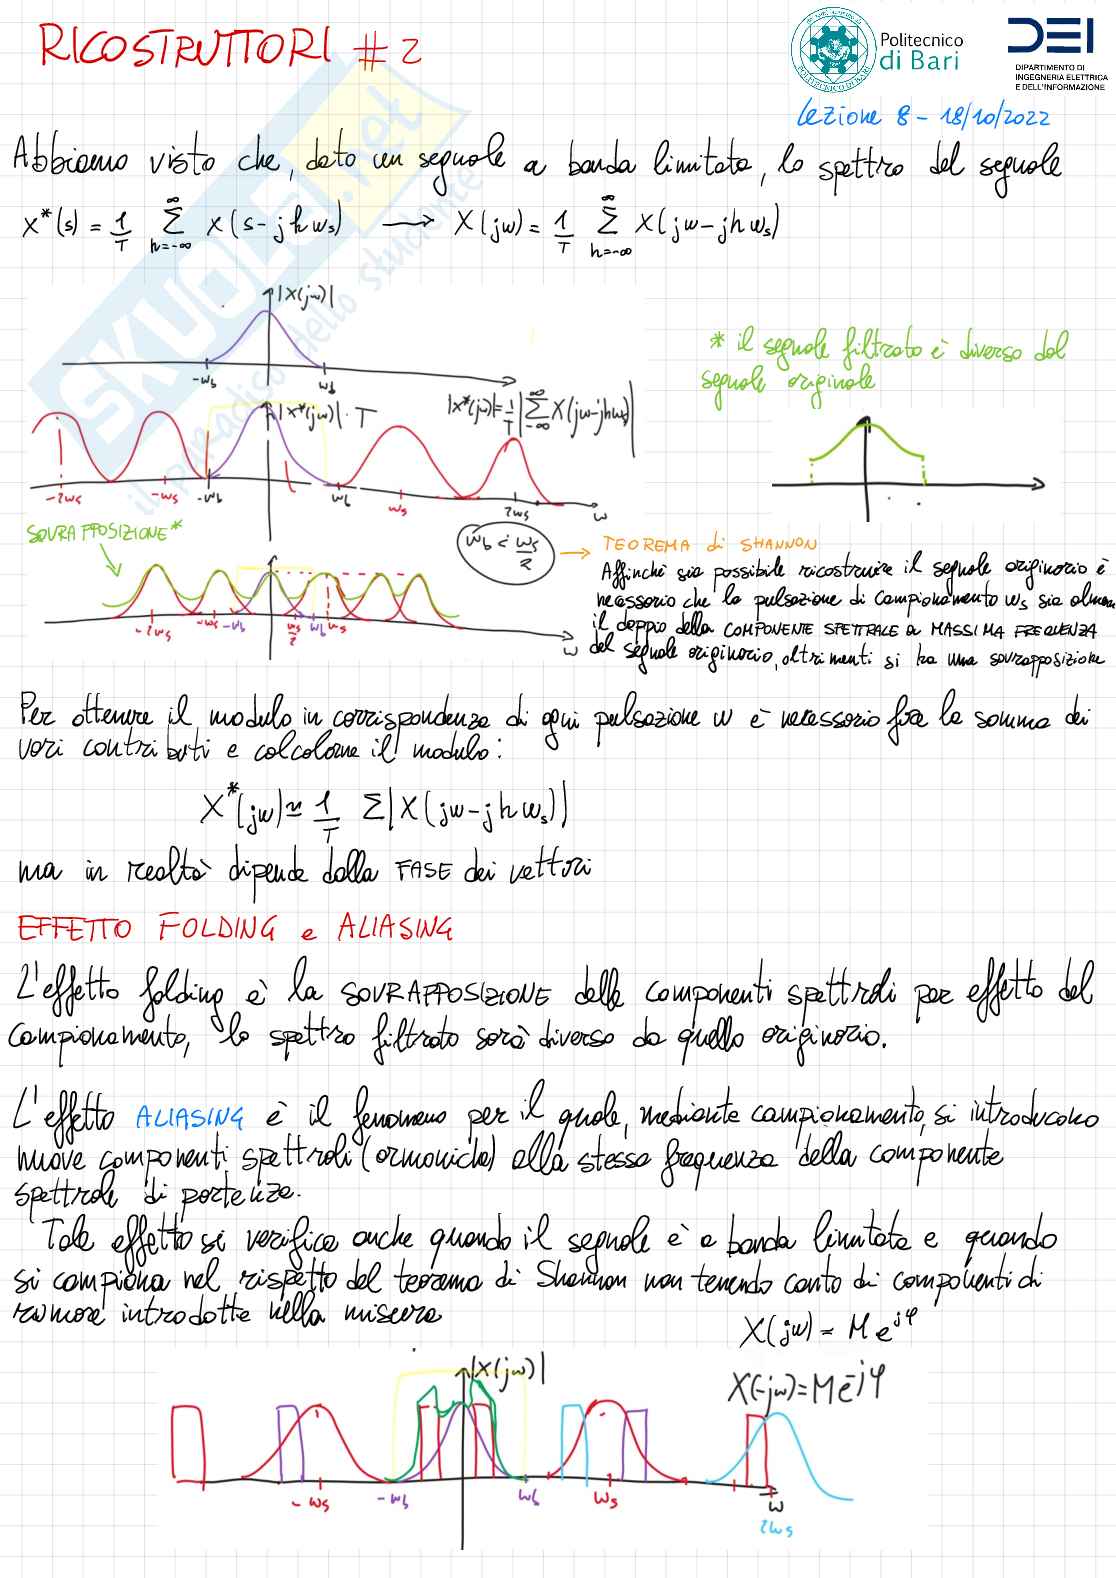 RICOSTRUTTORI #2
Politecnico di Bari
DEI
DIPARTIMENTO DI
INGEGNERIA ELETTRICA
E DELL'INFORMAZIONE
POLITECNICO DI BARI
Lezione 8 - 18/10/2022
SKUOLA.net
il paradiso dello studente
Abbiamo visto che, dato un segnale a banda limitata, lo spettro del segnale
X*(s) = 1/T Σ h=-∞ ∞ X(s-jhws) → X(jw) = 1/T Σ h=-∞ ∞ X(jw-jhws)
|X(jw)|
-wb wb
* il segnale filtrato è diverso dal
segnale originale
|X*(jw)|·T
|X*(jw)|=1/T|Σ -∞ ∞ X(jw-jhws)|
-2ws -ws -wb wb ws 2ws w
SOVRAPPOSIZIONE*
wb < ws/2 → TEOREMA di SHANNON
Affinché sia possibile ricostruire il segnale originario è
necessario che la pulsazione di campionamento ws sia almeno
il doppio della COMPONENTE SPETTRALE a MASSIMA FREQUENZA
del segnale originario, altrimenti si ha una sovrapposizione
-2ws -ws -wb ws/2 wb ws w
Per ottenere il modulo in corrispondenza di ogni pulsazione w è necessario fare la somma dei
vari contributi e calcolarne il modulo:
X*(jw) ≃ 1/T Σ|X(jw-jhws)|
ma in realtà dipende dalla FASE dei vettori
EFFETTO FOLDING e ALIASING
L'effetto folding è la SOVRAPPOSIZIONE delle componenti spettrali per effetto del
campionamento, lo spettro filtrato sarà diverso da quello originario.
L'effetto ALIASING è il fenomeno per il quale, mediante campionamento, si introducono
nuove componenti spettrali (armoniche) alla stessa frequenza della componente
spettrale di partenza.
Tale effetto si verifica anche quando il segnale è a banda limitata e quando
si campiona nel rispetto del teorema di Shannon non tenendo conto di componenti di
rumore introdotte nella misura
X(jw) = M e^jφ
|X(jw)|
X(-jw) = M e^-jφ
-ws -wb wb ws w
2ws